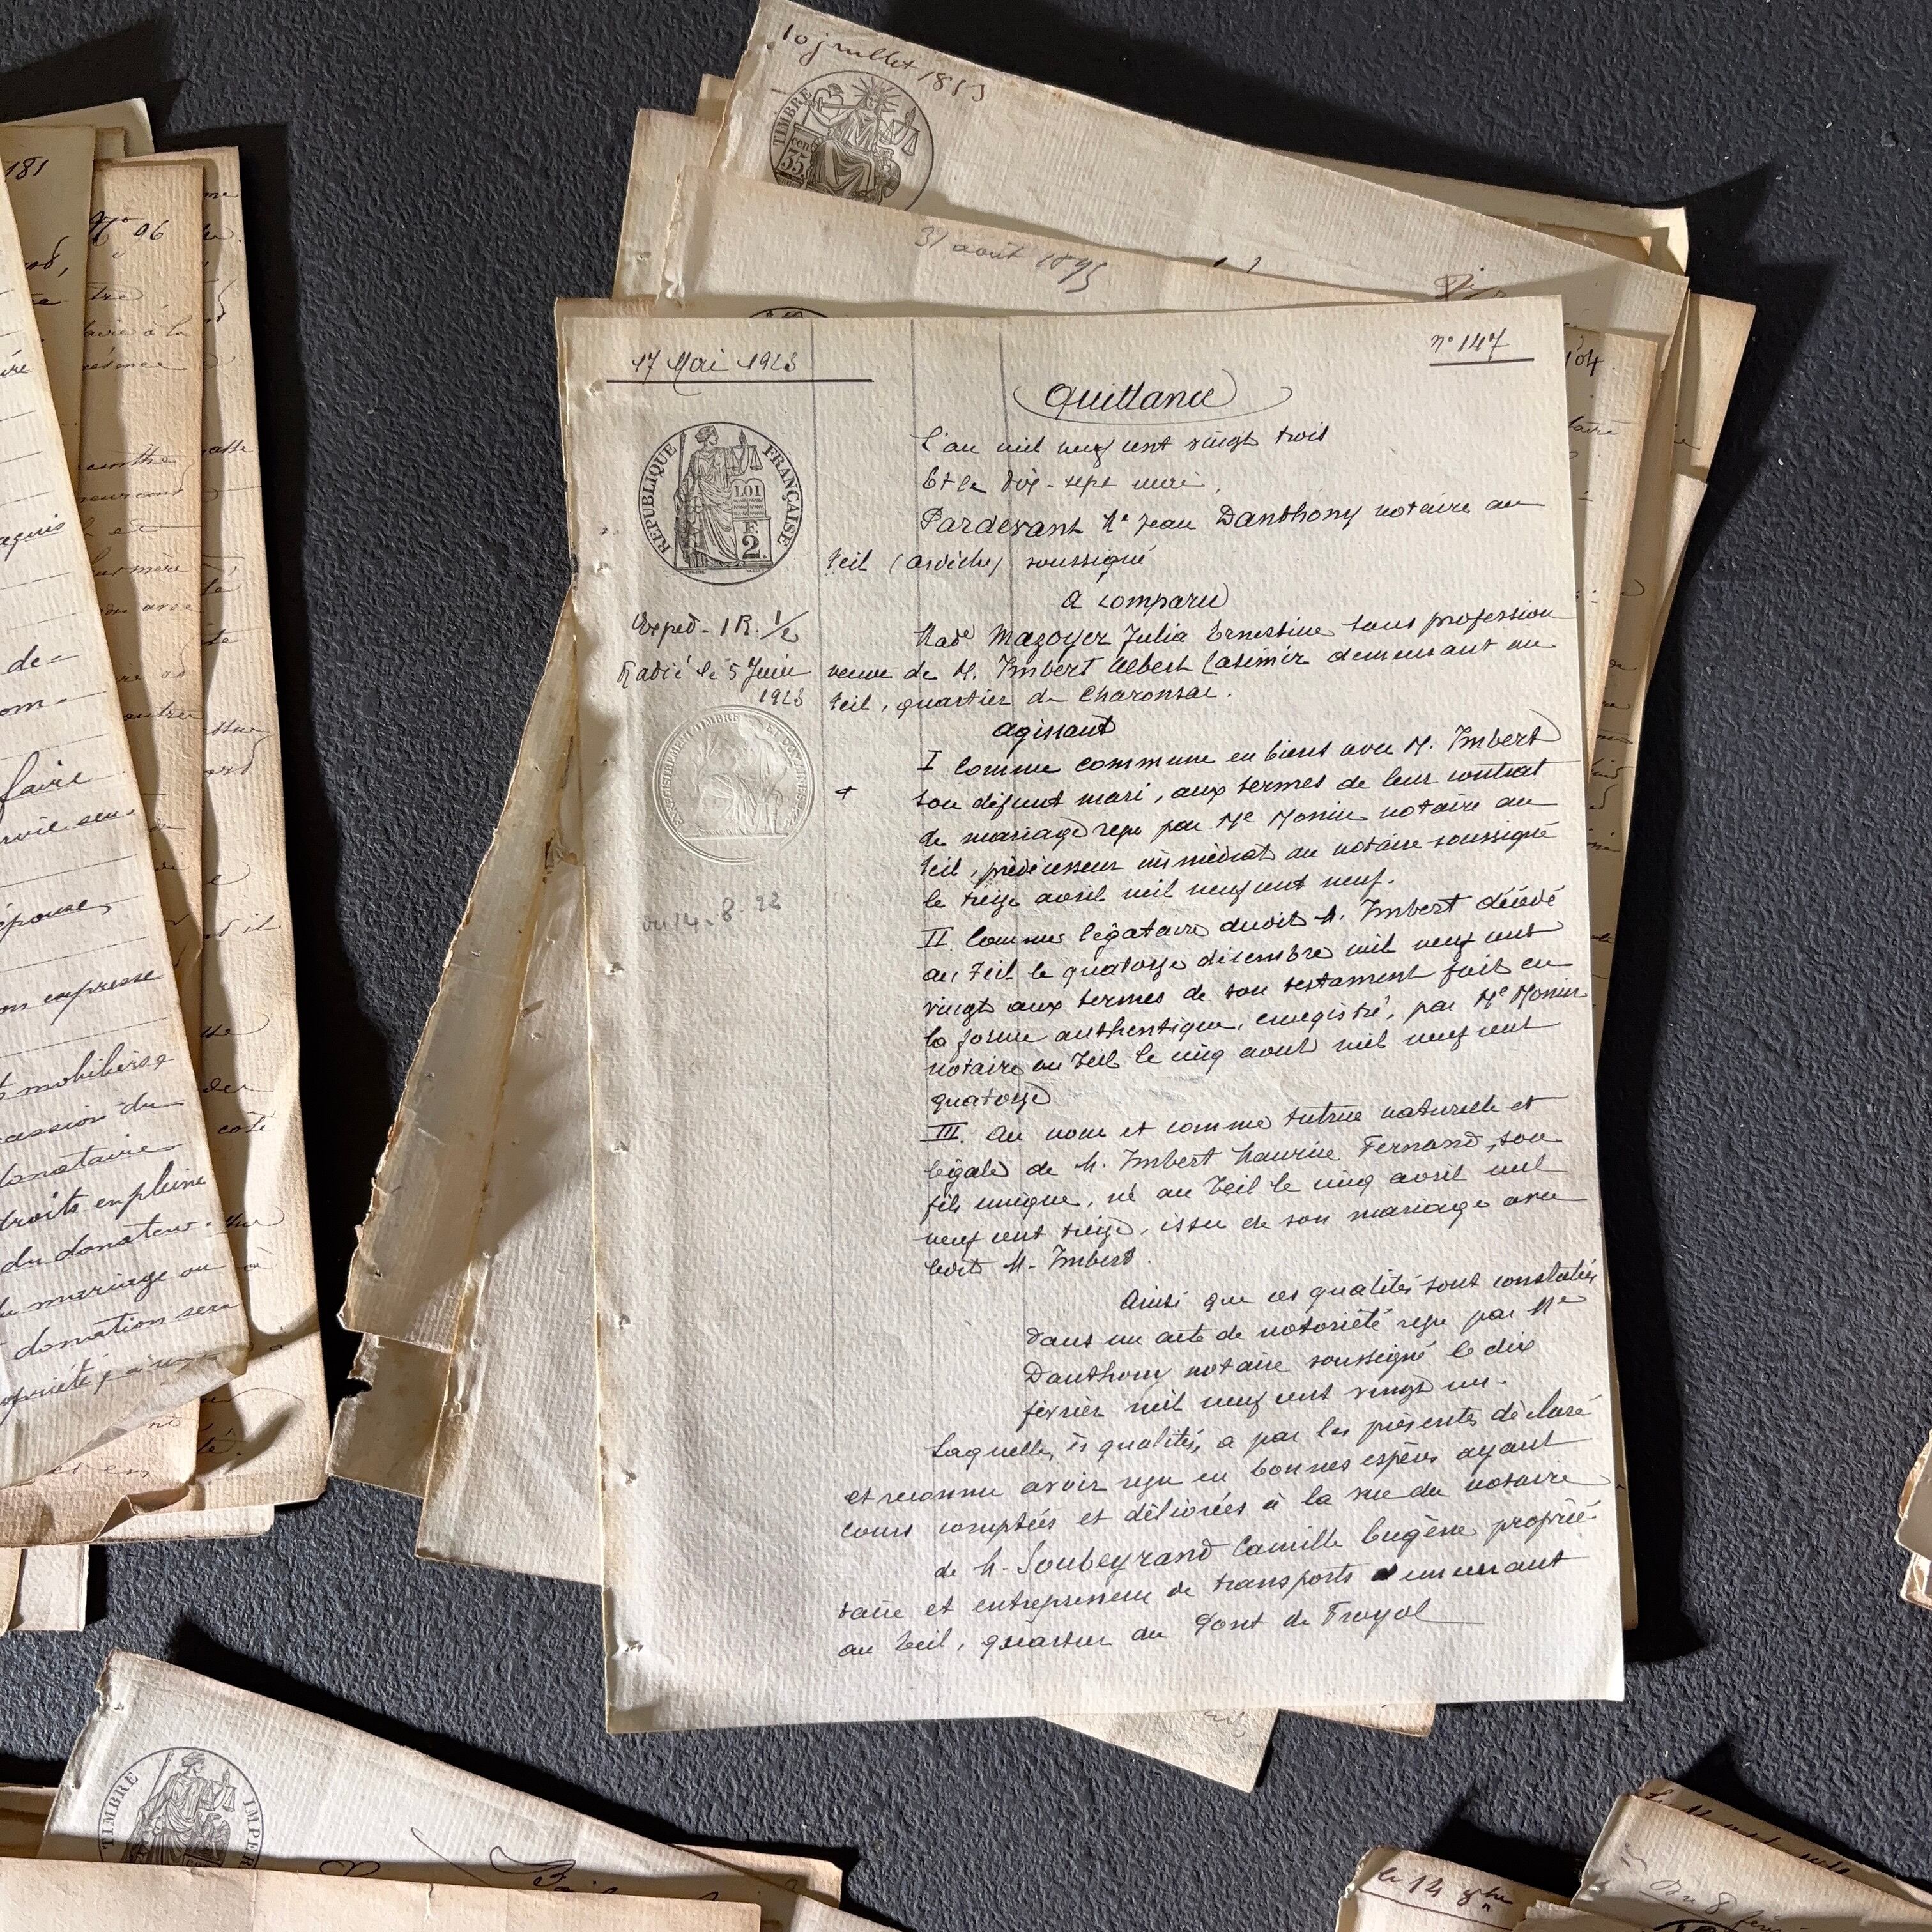 10 juillet 1813
TIMBRE
cen
35.
31 août 1895
17 Mai 1923
n° 147
Quittance
REPUBLIQUE FRANÇAISE
LOI
F
2.
L'an mil neuf cent vingt trois
Et le dix-sept mai,
Pardevant Me Jean Danthony notaire au
Teil (Ardèche) soussigné
A comparu
Exped - 1 R. 1/2
Radié le 5 Juin
1923
Made Mazoyer Julia Ernestine sans profession
veuve de M. Imbert Albert Casimir demeurant au
Teil, quartier de
agissant
I Comme commune en biens avec M. Imbert
son défunt mari, aux termes de leur contrat
de mariage reçu par Me Monin notaire au
Teil, prédécesseur immédiat du notaire soussigné
le treize avril mil neuf cent neuf.
II. Comme légataire dudit M. Imbert décédé
au Teil le quatorze décembre mil neuf cent
vingt aux termes de son testament fait en
la forme authentique, enregistré, par Me Monin
notaire au Teil le cinq aout mil neuf cent
quatorze
III. Au nom et comme tutrice naturelle et
légale de M. Imbert Maurice Fernand, son
fils unique, né au Teil le cinq avril mil
neuf cent treize, issu de son mariage avec
ledit M. Imbert.
Ainsi que ces qualités sont constatées
dans un acte de notoriété reçu par Me
Danthony notaire soussigné le dix
février mil neuf cent vingt un.
Laquelle, ès qualités, a par les présentes déclaré
et reconnu avoir reçu en bonnes espèces ayant
cours comptées et délivrées à la vue du notaire
de M. Soubeyrand Camille Eugène proprié
taire et entrepreneur de transports demeurant
au Teil, quartier du Pont de Frayol
181
N° 96
104.
acquis
de=
om-
faire
épouse,
on expresse
mobilières
cassion du
donataire
droits en pleine
du donateur
du mariage ou
donation sera
côté
TIMBRE IMPER
le 14 8bre
Du 8